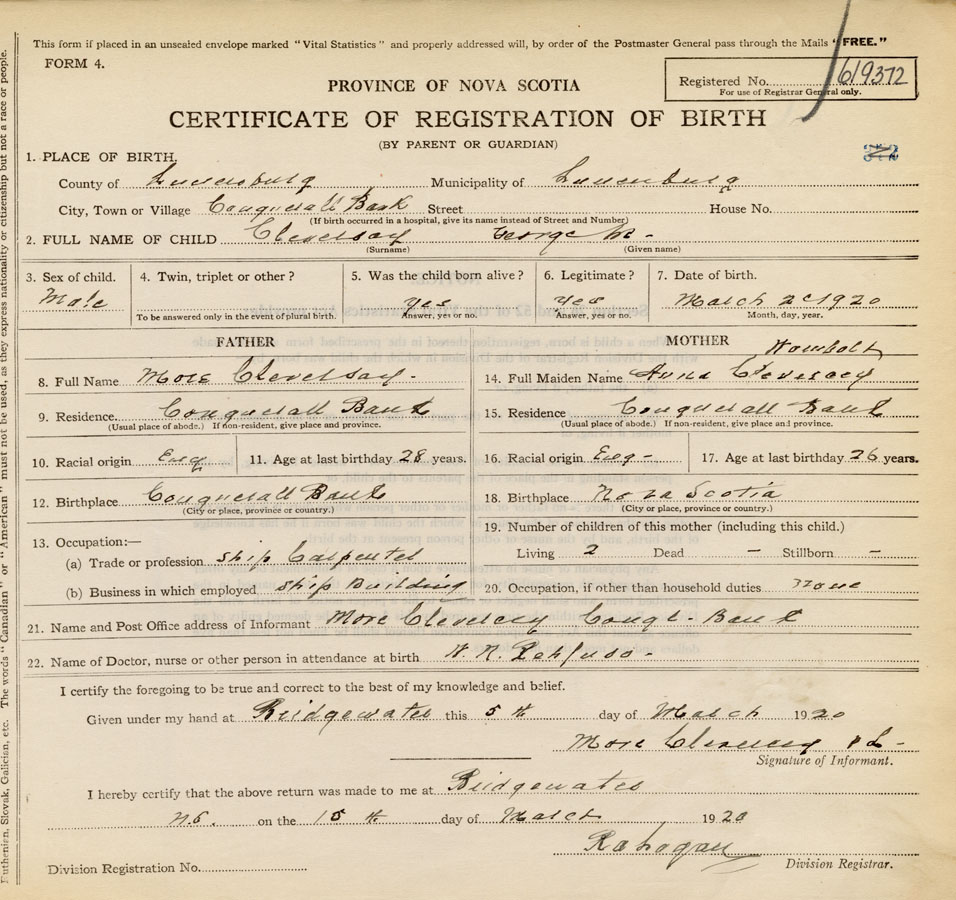 This form if placed in an unsealed envelope marked "Vital Statistics" and properly addressed will, by order of the Postmaster General pass through the Mails "FREE."
FORM 4.
Registered No. 619372
For use of Registrar General only.
PROVINCE OF NOVA SCOTIA
CERTIFICATE OF REGISTRATION OF BIRTH
(BY PARENT OR GUARDIAN)
1. PLACE OF BIRTH
County of Lunenburg Municipality of Lunenburg
City, Town or Village Conquerall Bank Street House No.
(If birth occurred in a hospital, give its name instead of Street and Number)
2. FULL NAME OF CHILD Cleversey George
(Surname) (Given name)
3. Sex of child. 4. Twin, triplet or other? 5. Was the child born alive? 6. Legitimate? 7. Date of birth.
Male yes yes March 2 1920
To be answered only in the event of plural birth. Answer, yes or no. Answer, yes or no. Month, day, year.
FATHER MOTHER
8. Full Name More Cleversey 14. Full Maiden Name Anna Cleversey
9. Residence Conquerall Bank 15. Residence Conquerall Bank
(Usual place of abode.) If non-resident, give place and province. (Usual place of abode.) If non-resident, give place and province.
10. Racial origin Eng 11. Age at last birthday 28 years. 16. Racial origin Eng - 17. Age at last birthday 26 years.
12. Birthplace Conquerall Bank 18. Birthplace Nova Scotia
(City or place, province or country.) (City or place, province or country.)
13. Occupation:— 19. Number of children of this mother (including this child.)
(a) Trade or profession ship Carpenter Living 2 Dead - Stillborn -
(b) Business in which employed ship Building 20. Occupation, if other than household duties none
21. Name and Post Office address of Informant More Cleversey Conq - Bank
22. Name of Doctor, nurse or other person in attendance at birth
I certify the foregoing to be true and correct to the best of my knowledge and belief.
Given under my hand at Bridgewater this 5th day of March 1920
More Cleversey
Signature of Informant.
I hereby certify that the above return was made to me at Bridgewater
N.S. on the 15th day of March 1920
Division Registration No. Division Registrar.
Ruthenian, Slovak, Galician, etc. The words "Canadian" or "American" must not be used, as they express nationality or citizenship but not a race or people.